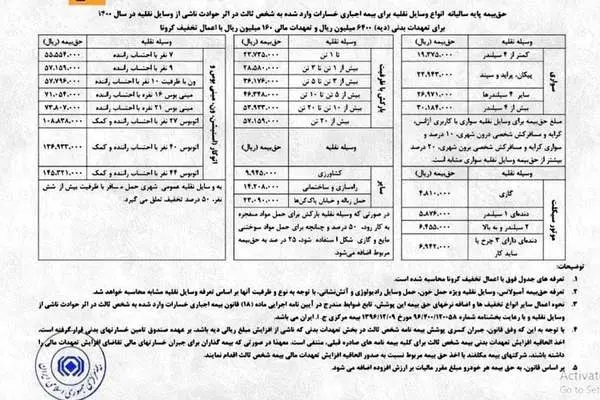 حق‌بیمه پایه سالیانه انواع وسایل نقلیه برای بیمه اجباری خسارات وارد شده به شخص ثالث در اثر حوادث ناشی از وسایل نقلیه در سال ۱۴۰۰
برای تعهدات بدنی (دیه) ۶۴۰۰ میلیون ریال و تعهدات مالی ۱۶۰ میلیون ریال با اعمال تخفیف کرونا
سواری
وسیله نقلیه حق‌بیمه (ریال)
کمتر از ۴ سیلندر ۱۹.۳۷۵.۰۰۰
پیکان، پراید و سپند ۲۲.۹۴۳.۰۰۰
سایر ۴ سیلندرها ۲۶.۹۷۱.۰۰۰
بیش از ۴ سیلندر ۳۰.۱۸۴.۰۰۰
مبلغ حق‌بیمه برای وسایل نقلیه سواری با کاربری آژانس،
کرایه و مسافرکش شخصی درون شهری، ۱۰ درصد و
سواری کرایه و مسافرکش شخصی برون شهری، ۲۰ درصد
بیشتر از حق‌بیمه وسایل نقلیه سواری مشابه است.
موتور سیکلت
وسیله نقلیه حق‌بیمه (ریال)
گازی ۴.۸۱۰.۰۰۰
دنده‌ای ۱ سیلندر ۵.۸۷۶.۰۰۰
۲ سیلندر و به بالا ۶.۴۵۵.۰۰۰
دنده‌ای دارای ۳ چرخ یا ساید کار ۶.۹۴۲.۰۰۰
بارکش با ظرفیت
وسیله نقلیه حق‌بیمه (ریال)
تا ۱ تن ۲۳.۷۳۵.۰۰۰
بیش از ۱ تن تا ۳ تن ۲۸.۵۸۰.۰۰۰
بیش از ۳ تا ۵ تن ۳۶.۱۷۶.۰۰۰
بیش از ۵ تن تا ۱۰ تن ۴۶.۳۴۸.۰۰۰
بیش از ۱۰ تن تا ۲۰ تن ۵۳.۹۳۳.۰۰۰
بیش از ۲۰ تن ۵۷.۱۵۹.۰۰۰
سایر
کشاورزی ۹.۹۴۵.۰۰۰
راه‌سازی و ساختمانی ۱۴.۲۰۸.۰۰۰
حمل زباله و خیابان پاک‌کن‌ها ۲۳.۰۹۰.۰۰۰
در صورتی که وسیله نقلیه بارکش برای حمل مواد منفجره
به کار رود، ۵۰ درصد و چنانچه برای حمل مواد سوختنی
مایع و گازی شکل استفاده شود، ۲۵ صد به حق‌بیمه
مربوط اضافه می‌شود.
اتوکار (استیشن)، ون، مینی بوس و
وسیله نقلیه حق‌بیمه (ریال)
۷ نفر با احتساب راننده ۵۵.۵۵۴.۰۰۰
۹ نفر با احتساب راننده ۵۷.۱۵۹.۰۰۰
ون با ظرفیت ۱۰ نفر با احتساب راننده ۵۷.۷۹۶.۰۰۰
مینی بوس ۱۶ نفره با احتساب راننده ۷۱.۰۵۴.۰۰۰
مینی بوس ۲۱ نفر با احتساب راننده ۷۳.۸۰۷.۰۰۰
اتوبوس ۲۷ نفر با احتساب راننده و کمک ۱۰۸.۸۳۸.۰۰۰
اتوبوس ۴۰ نفر با احتساب راننده و کمک ۱۳۶.۹۳۳.۰۰۰
اتوبوس ۴۴ نفر با احتساب راننده و کمک ۱۴۵.۳۲۱.۰۰۰
به وسایل نقلیه عمومی شهری حمل مسافر با ظرفیت بیش از شش
نفر، ۵۰ درصد تخفیف تعلق می گیرد.
توضیحات:
۱. تعرفه های جدول فوق با اعمال تخفیف کرونا محاسبه شده است.
۲. تعرفه حق‌بیمه آمبولانس، وسایل نقلیه ویژه حمل خون، حمل وسایل رادیولوژی و آتش‌نشانی، با توجه به نوع و ظرفیت آنها بر اساس تعرفه وسایل نقلیه مشابه محاسبه خواهد شد.
۳. نحوه اعمال سایر انواع تخفیف ها و اضافه نرخهای حق بیمه این پوشش، تابع ضوابط مندرج در آیین نامه اجرایی ماده (۱۸) قانون بیمه اجباری خسارات وارد شده به شخص ثالث در اثر حوادث ناشی از
وسایل نقلیه و با رعایت بخشنامه شماره ۹۶/۴۰۰/۱۲۰۰۵۸ مورخ ۱۳۹۶/۱۲/۰۹ بیمه مرکزی ج.ا. ایران می باشد.
۴. با توجه به این که وفق قانون، جبران کسری پوشش بیمه نامه شخص ثالث در بخش تعهدات بدنی که ناشی از افزایش مبلغ ریالی دیه باشد، بر عهده صندوق تامین خسارتهای بدنی قرار گرفته است،
اخذ الحاقیه افزایش تعهدات بدنی بیمه شخص ثالث برای کلیه بیمه نامه های صادره قبلی، منتفی است. معهذا در صورتی که بیمه گذاران برای جبران خسارتهای مالی تقاضای افزایش تعهدات مالی را
داشته باشند، شرکتهای بیمه مکلفند با اخذ حق بیمه مربوط نسبت به صدور الحاقیه افزایش تعهدات مالی بیمه شخص ثالث اقدام نمایند.
۵. بر اساس قانون، به حق بیمه هر خودرو مبلغ مقرر مالیات بر ارزش افزوده اضافه می شود.
Activate
Go to Set